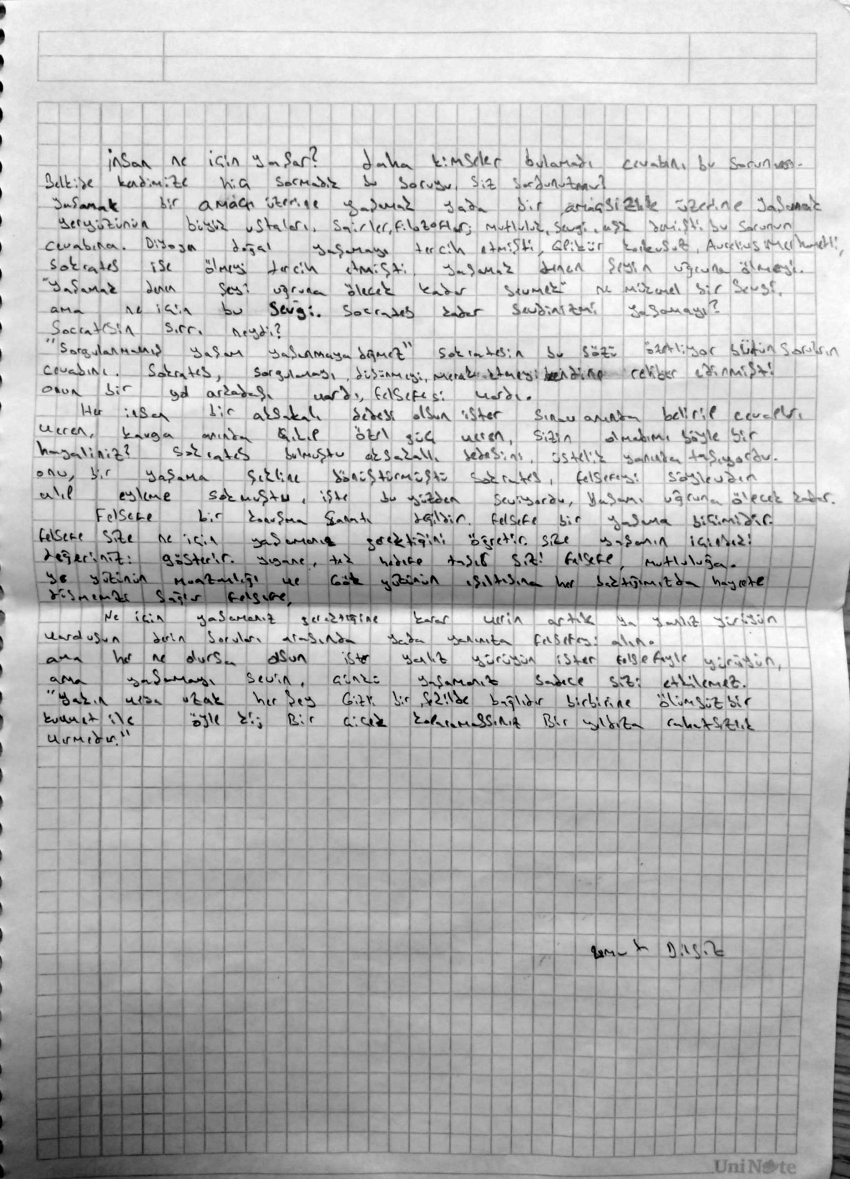 insan ne için yaşar? daha kimseler bulamadı cevabını bu sorunun.
Belkide kendimize hiç sormadık bu soruyu, siz sordunuzmu?
yaşamak bir amaç üzerine yaşamak yada bir amaçsızlık üzerine yaşamak
yeryüzünün büyük ustaları, Şairler, filozoflar, mutluluk, sevgi, aşk demişti bu sorunun
cevabına. Diyojen doğal yaşamayı tercih etmişti, epikür korkusuz, Aurelius merhametli,
sokrates ise ölmeyi tercih etmişti yaşamak denen şeyin uğruna ölmeyi.
"yaşamak denen şeyi uğruna ölecek kadar sevmek" ne mükemel bir sevgi,
ama ne için bu sevgi. Socrates kadar sevdinizmi yaşamayı?
Socratesin sırrı neydi?
"Sorgulanmamış yaşam yaşanmaya değmez" sokratesin bu sözü özetliyor bütün soruların
cevabını. Sokrates, sorgulamayı, düşünmeyi, merak etmeyi kendine rehber edinmişti
onun bir yol arkadaşı vardı, felsefesi vardı.
Her insan bir aksakallı dedesi olsun ister sınav anında belirip cevapları
veren, kavga anında çıkıp özel güç veren, sizin olmadımı böyle bir
hayaliniz? Sokrates bulmuştu aksakallı dedesini, üstelik yanında taşıyordu.
onu, bir yaşama şekline dönüştürmüştü sokrates, felsefeyi söylevden
alıp eyleme sokmuştu, işte bu yüzden seviyordu, yaşamı uğruna ölecek kadar.
Felsefe bir konuşma sanatı değildir. felsefe bir yaşama biçimidir.
felsefe size ne için yaşamanız gerektiğini öğretir. size yaşamın içindeki
değeriniz: gösterir. yegane, tek hedefe taşır sizi felsefe, mutluluğa.
yer yüzünün muntazamlığı ve Gök yüzünün ışıltısına her baktığımızda hayrete
düşmemizi sağlar felsefe,
Ne için yaşamanız gerektiğine karar verin artık ya yanlız yürüyün
varoluşun derin soruları arasında yada yanınıza felsefeyi alın.
ama her ne olursa olsun ister yanlız yürüyün ister felsefeyle yürüyün,
ama yaşamayı sevin, çünkü yaşamanız sadece sizi etkilemez.
"Yakın veya uzak her şey Gizli bir şekilde bağlıdır birbirine ölümsüz bir
kuvvet ile öyle ki; Bir çiçek koparamassınız Bir yıldıza rahatsızlık
vermeden."
Dilsiz
UniNote